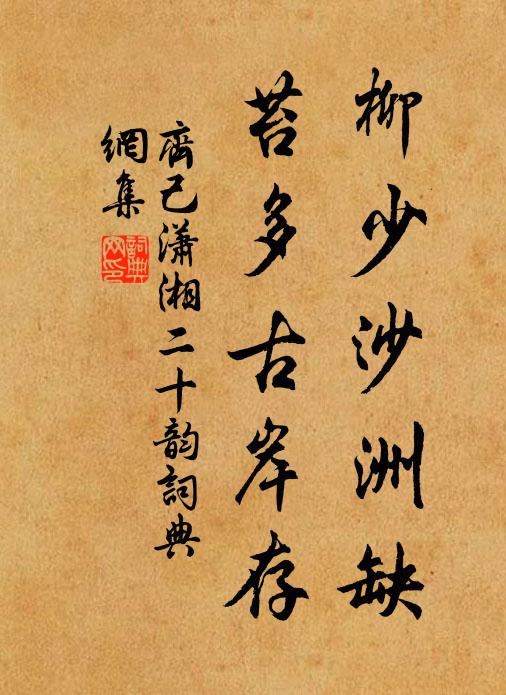 柳少沙洲缺
苔多古岸存
齊己瀟湘二十韵詞典
網集
詞典
网印